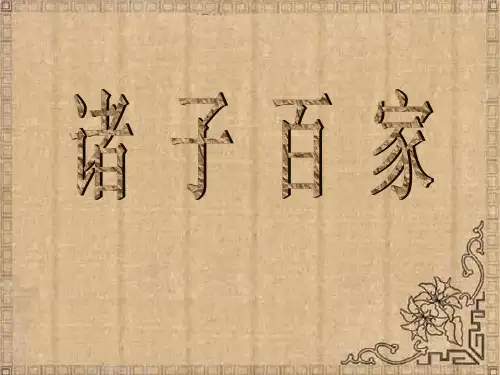 诸子百家